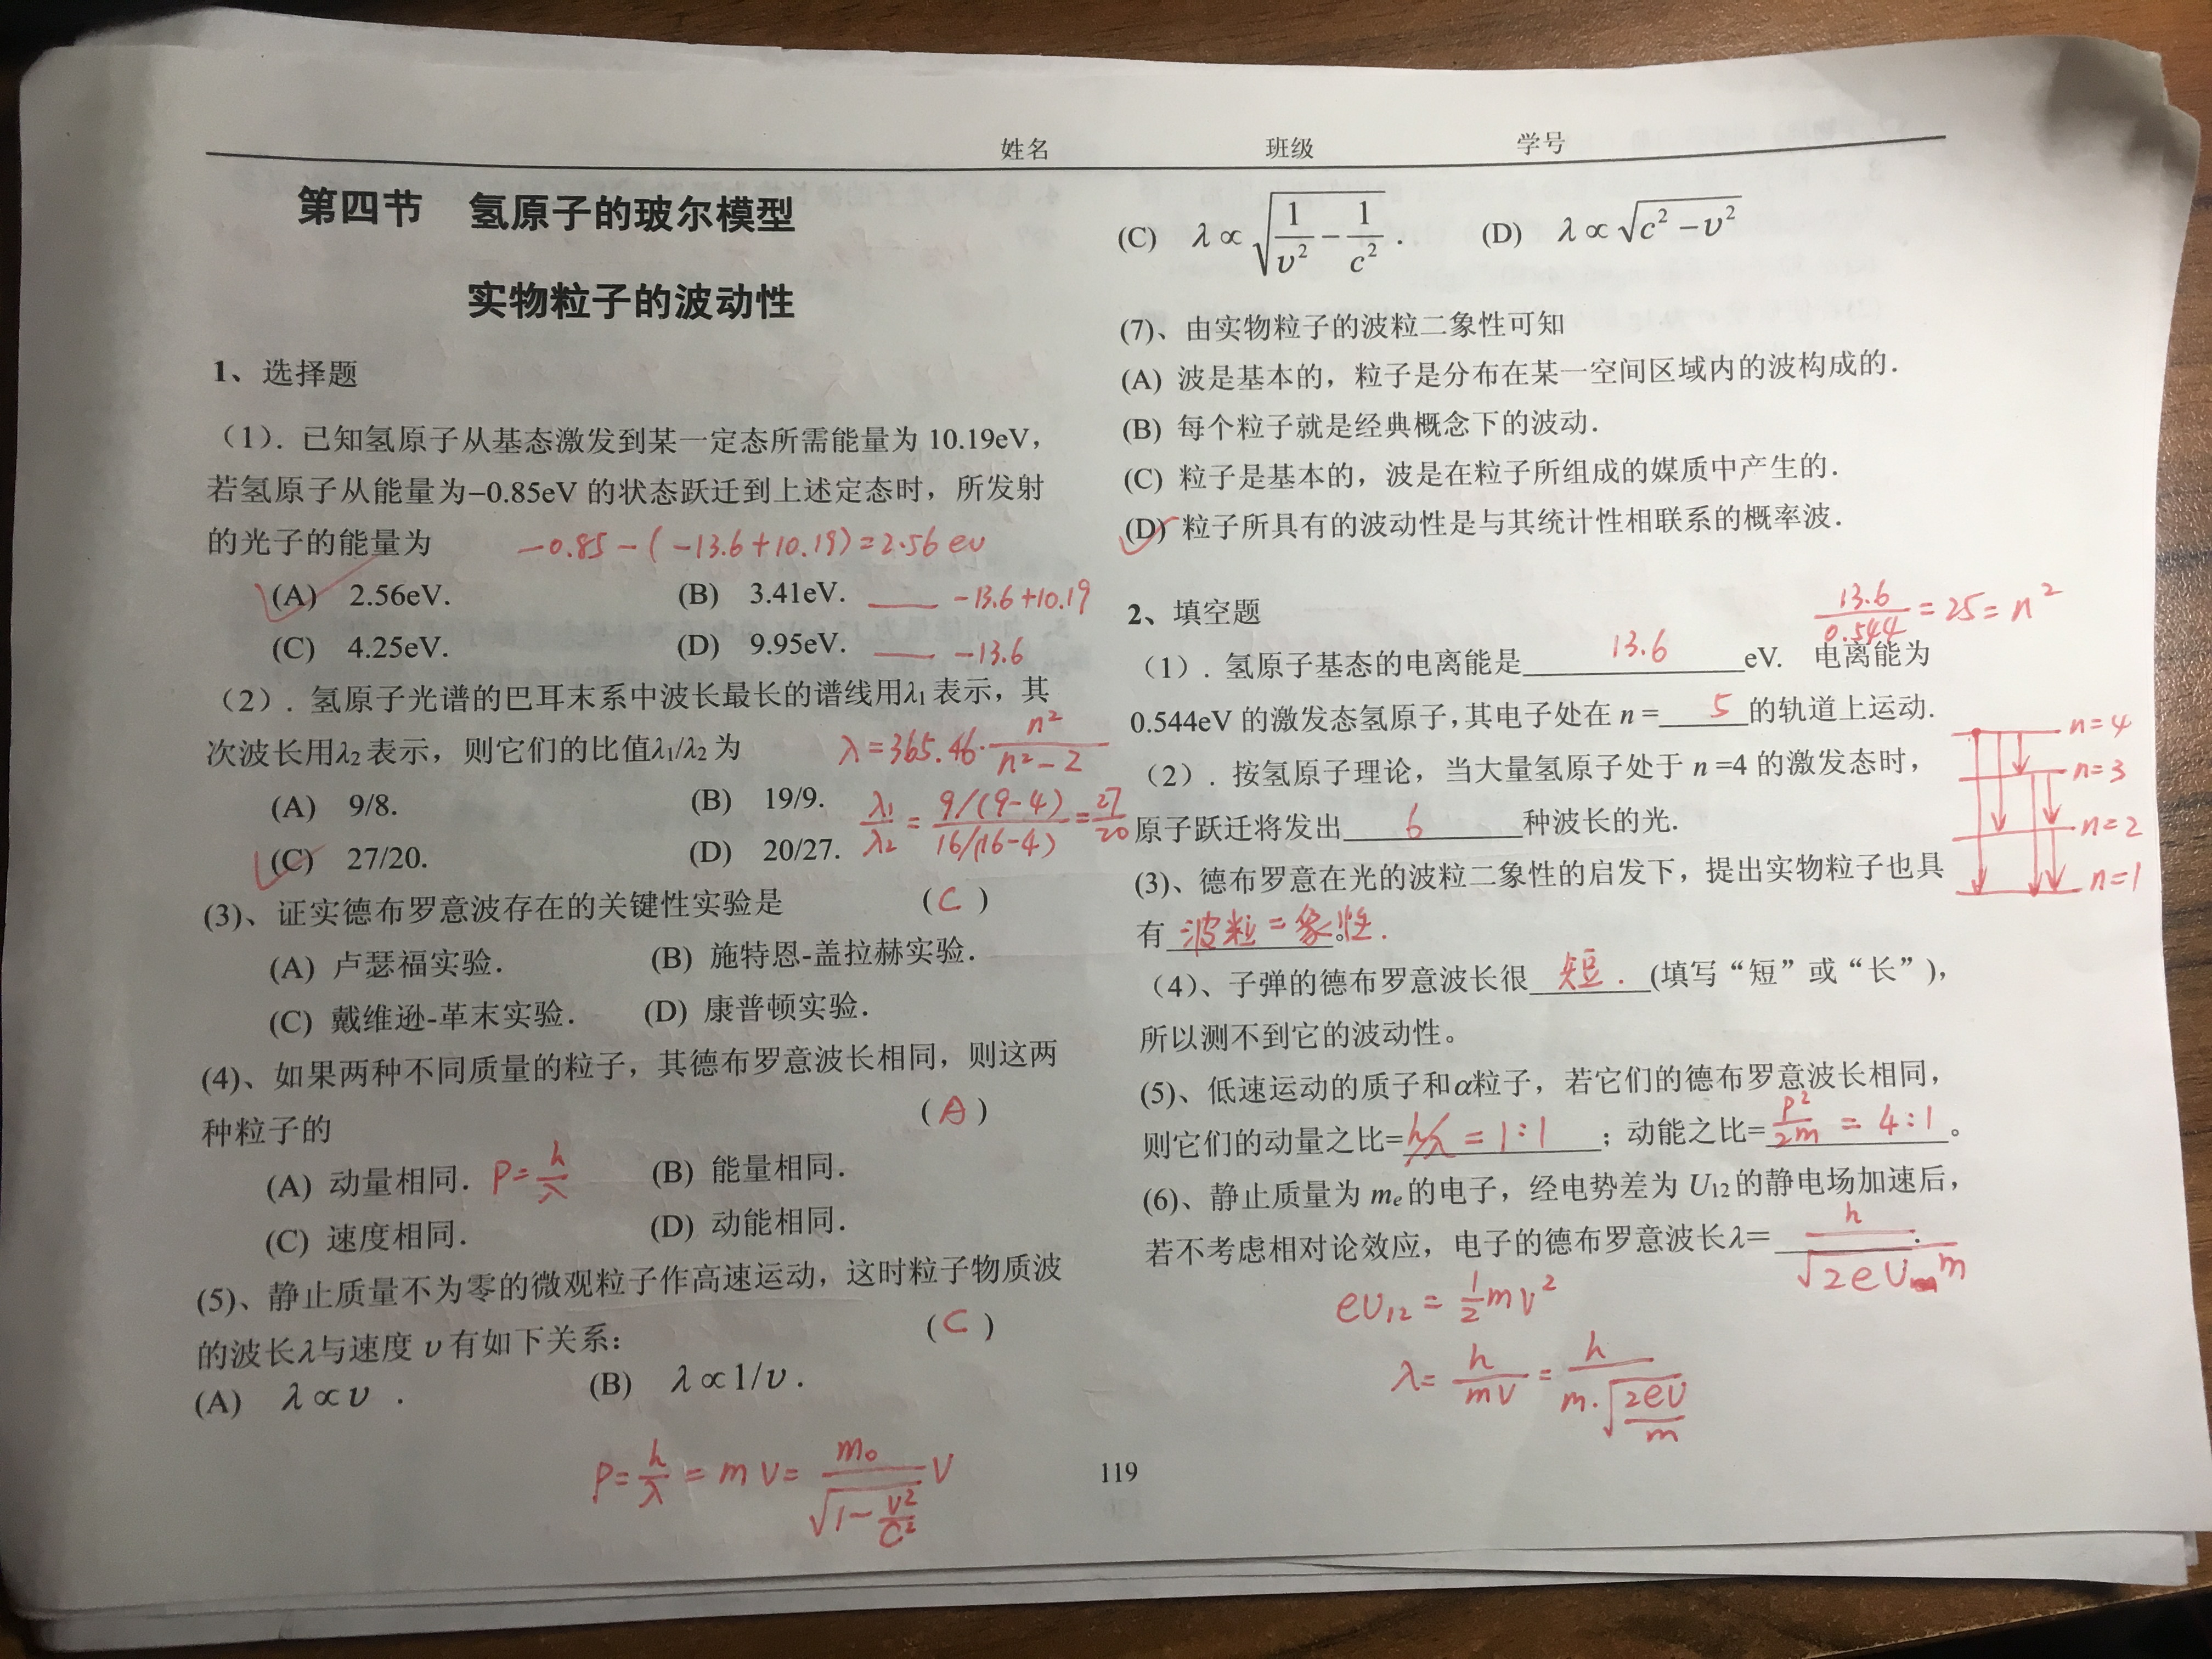 姓名 班级 学号
第四节 氢原子的玻尔模型
实物粒子的波动性
1、选择题
（1）. 已知氢原子从基态激发到某一定态所需能量为 10.19eV，
若氢原子从能量为−0.85eV 的状态跃迁到上述定态时，所发射
的光子的能量为 −0.85−(−13.6+10.19)=2.56 ev
(A) 2.56eV. (B) 3.41eV. −13.6+10.19
(C) 4.25eV. (D) 9.95eV. −13.6
（2）. 氢原子光谱的巴耳末系中波长最长的谱线用λ₁表示，其
次波长用λ₂表示，则它们的比值λ₁/λ₂为 λ=365.46·n²/(n²−2)
(A) 9/8. (B) 19/9. λ₁/λ₂ = 9/(9−4) / 16/(16−4) = 27/20
(C) 27/20. (D) 20/27.
(3)、证实德布罗意波存在的关键性实验是 ( C )
(A) 卢瑟福实验. (B) 施特恩-盖拉赫实验.
(C) 戴维逊-革末实验. (D) 康普顿实验.
(4)、如果两种不同质量的粒子，其德布罗意波长相同，则这两
种粒子的 ( A )
(A) 动量相同. P=h/λ (B) 能量相同.
(C) 速度相同. (D) 动能相同.
(5)、静止质量不为零的微观粒子作高速运动，这时粒子物质波
的波长λ与速度 υ 有如下关系: ( C )
(A) λ∝υ . (B) λ∝1/υ .
P=h/λ = mV = m₀/√(1−V²/C²) V
(C) λ∝√(1/υ² − 1/c²) . (D) λ∝√(c²−υ²)
(7)、由实物粒子的波粒二象性可知
(A) 波是基本的，粒子是分布在某一空间区域内的波构成的.
(B) 每个粒子就是经典概念下的波动.
(C) 粒子是基本的，波是在粒子所组成的媒质中产生的.
(D) 粒子所具有的波动性是与其统计性相联系的概率波.
2、填空题 13.6/0.544 = 25 = n²
（1）. 氢原子基态的电离能是 13.6 eV. 电离能为
0.544eV 的激发态氢原子,其电子处在 n = 5 的轨道上运动.
（2）. 按氢原子理论，当大量氢原子处于 n =4 的激发态时，
原子跃迁将发出 6 种波长的光.
n=4
n=3
n=2
n=1
(3)、德布罗意在光的波粒二象性的启发下，提出实物粒子也具
有 波粒二象性. 。
（4）、子弹的德布罗意波长很 短. (填写“短”或“长”)，
所以测不到它的波动性。
(5)、低速运动的质子和α粒子，若它们的德布罗意波长相同，
则它们的动量之比= h/λ = 1:1 ；动能之比= P²/2m = 4:1 。
(6)、静止质量为 mₑ的电子，经电势差为 U₁₂的静电场加速后，
若不考虑相对论效应，电子的德布罗意波长λ= h/√(2eUm) .
eU₁₂ = ½mV²
λ= h/mV = h/(m·√(2eU/m))
119